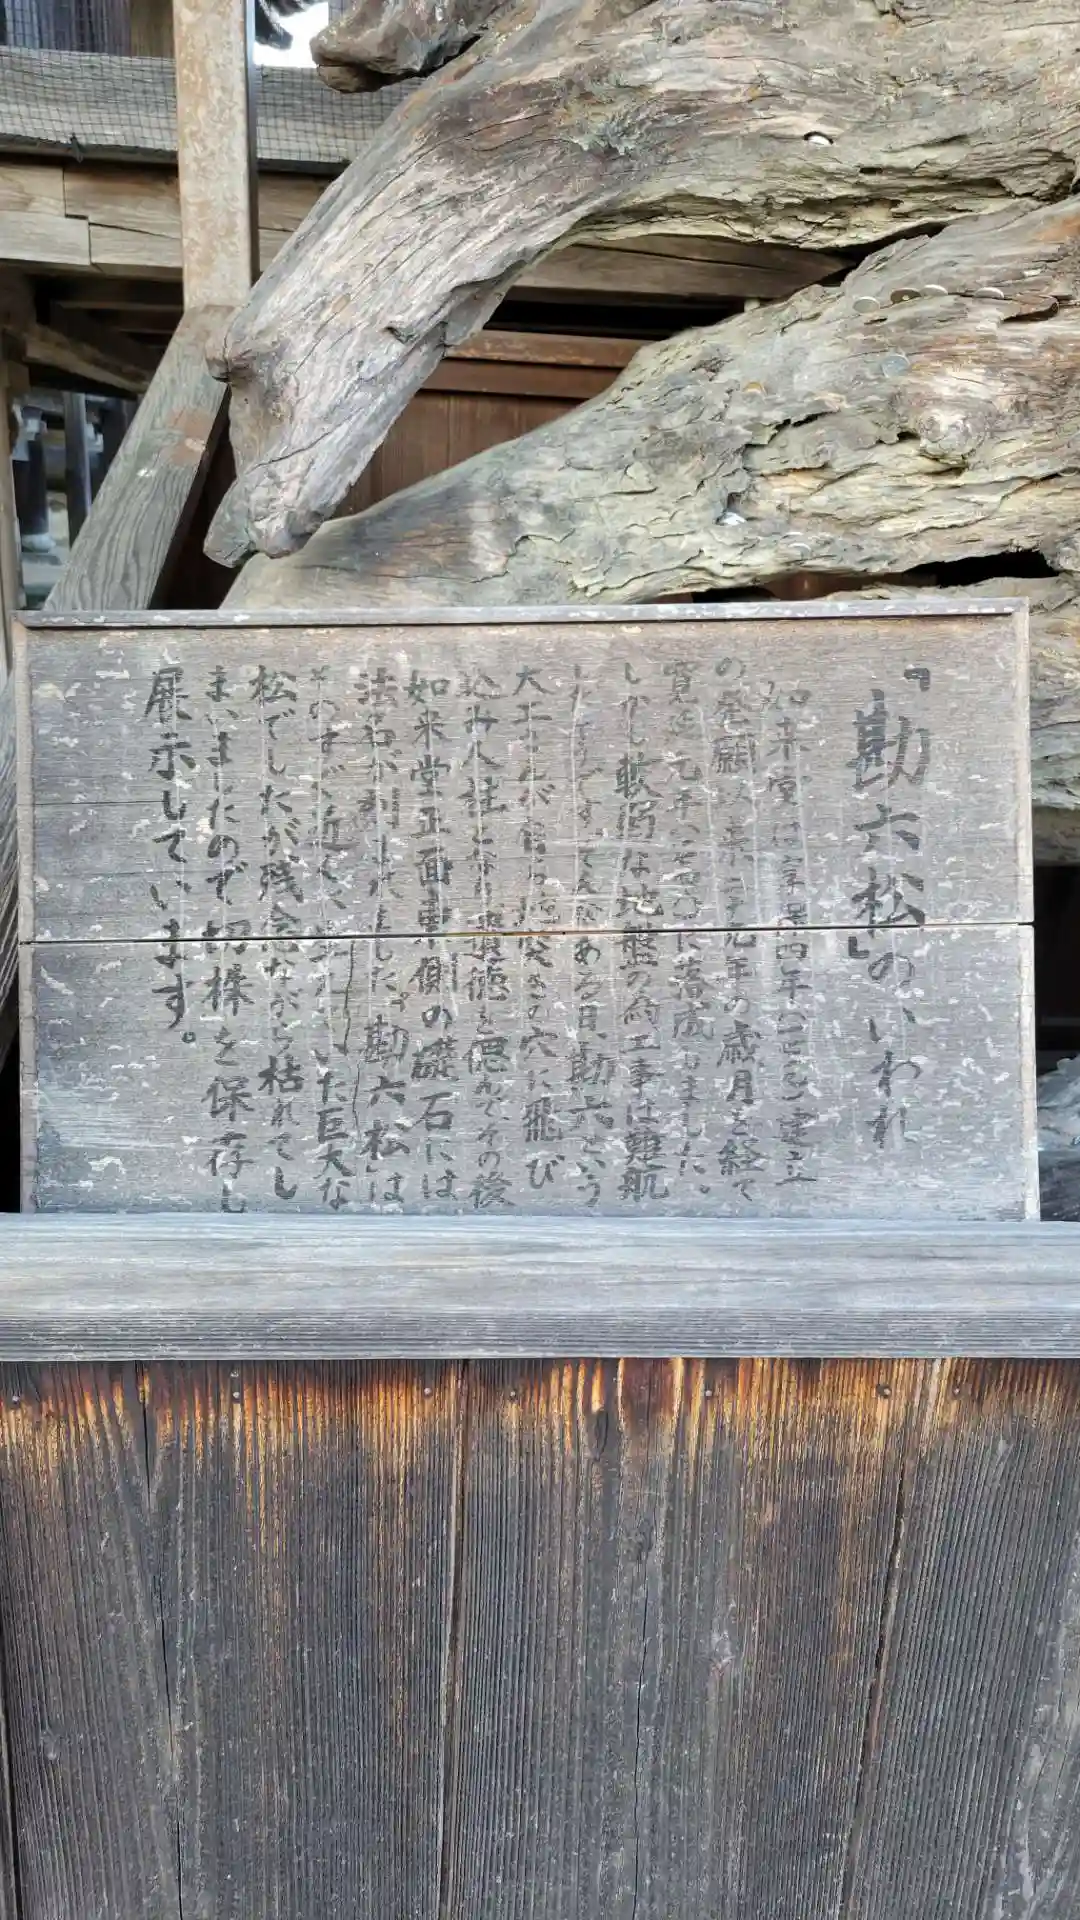 「勘六松」のいわれ
如来堂は享保四年(一七一九)建立
の発願以来二十元年の歳月を経て
寛延元年(一七四八)に落成しました。
しかし軟弱な地盤の為工事は難航
したそうです。そんなある日、勘六という
大工が自ら地突きの穴に飛び
込み人柱となり遺徳を偲んでその後
如来堂正面東側の礎石には
法名が刻まれました。「勘六松」は
そのすぐ近くに生えていた巨大な
松でしたが残念ながら枯れてし
まいましたので切株を保存し
展示しています。